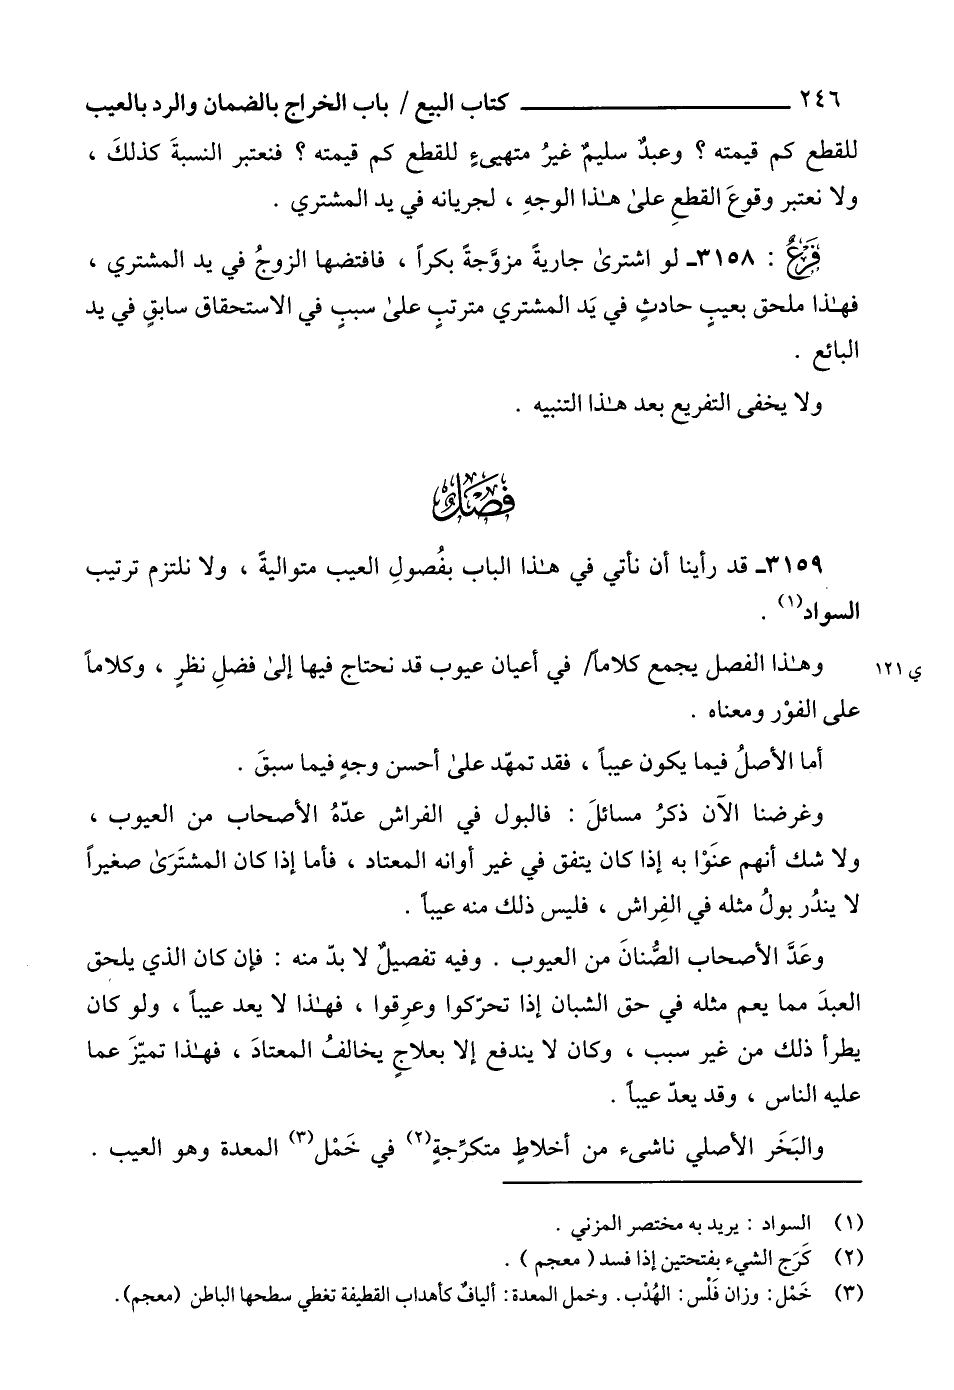 ٢٤٦ ـــــــــــــ كتاب البيع / باب الخراج بالضمان والرد بالعيب
للقطع كم قيمته ؟ وعبدٌ سليمٌ غيرُ متهيىءٍ للقطع كم قيمته ؟ فنعتبر النسبةَ كذلكَ ،
ولا نعتبر وقوعَ القطعِ علىٰ هـٰذا الوجهِ ، لجريانه في يد المشتري .
فَرْعٌ : ٣١٥٨ـ لو اشترىٰ جاريةً مزوَّجةً بكراً ، فافتضها الزوجُ في يد المشتري ،
فهـٰذا ملحق بعيبٍ حادثٍ في يَد المشتري مترتبٍ علىٰ سببٍ في الاستحقاق سابقٍ في يد
البائع .
ولا يخفى التفريع بعد هـٰذا التنبيه .
فَصْلٌ
٣١٥٩ـ قد رأينا أن نأتي في هـٰذا الباب بفُصولِ العيب متواليةً ، ولا نلتزم ترتيب
السواد(١) .
وهـٰذا الفصل يجمع كلاماً/ في أعيان عيوب قد نحتاج فيها إلىٰ فضلِ نظرٍ ، وكلاماً
ي ١٢١
على الفوْر ومعناه .
أما الأصلُ فيما يكون عيباً ، فقد تمهّد علىٰ أحسن وجهٍ فيما سبقَ .
وغرضنا الآن ذكرُ مسائلَ : فالبول في الفراش عدّهُ الأصحاب من العيوب ،
ولا شك أنهم عنَوْا به إذا كان يتفق في غير أوانه المعتاد ، فأما إذا كان المشتَرَىٰ صغيراً
لا يندُر بولُ مثله في الفِراش ، فليس ذلك منه عيباً .
وعَدَّ الأصحاب الصُّنانَ من العيوب . وفيه تفصيلٌ لا بدّ منه : فإن كان الذي يلحق
العبدَ مما يعم مثله في حق الشبان إذا تحرّكوا وعرِقوا ، فهـٰذا لا يعد عيباً ، ولو كان
يطرأ ذلك من غير سبب ، وكان لا يندفع إلا بعلاجٍ يخالفُ المعتادَ ، فهـٰذا تميّزَ عما
عليه الناس ، وقد يعدّ عيباً .
والبَخَر الأصلي ناشىء من أخلاطٍ متكرِّجةٍ(٢) في خَمْل(٣) المعدة وهو العيب .
(١) السواد : يريد به مختصر المزني .
(٢) كَرَج الشيء بفتحتين إذا فسد ( معجم ) .
(٣) خَمْل : وزان فَلْس : الهُدْب . وخمل المعدة : أليافٌ كأهداب القطيفة تغطي سطحها الباطن (معجم) .